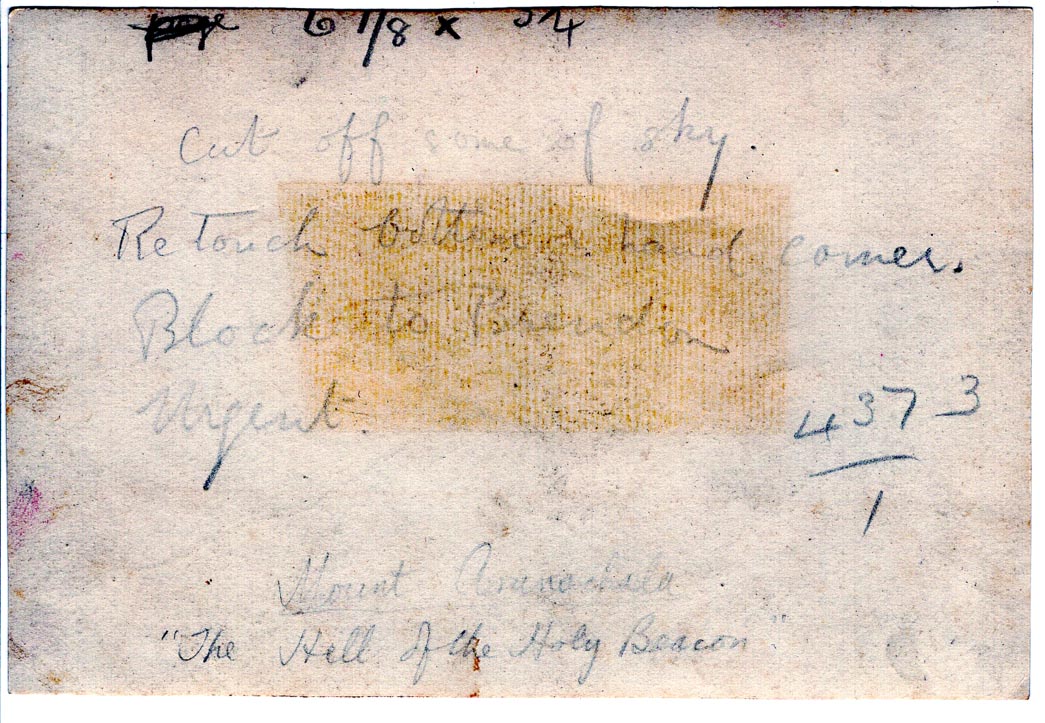 6 1/8 x
Cut off some of sky.
Retouch bottom hand corner.
Block to Brendon
Urgent.
4373
1
Mount Arunachala
"The Hill of the Holy Beacon"